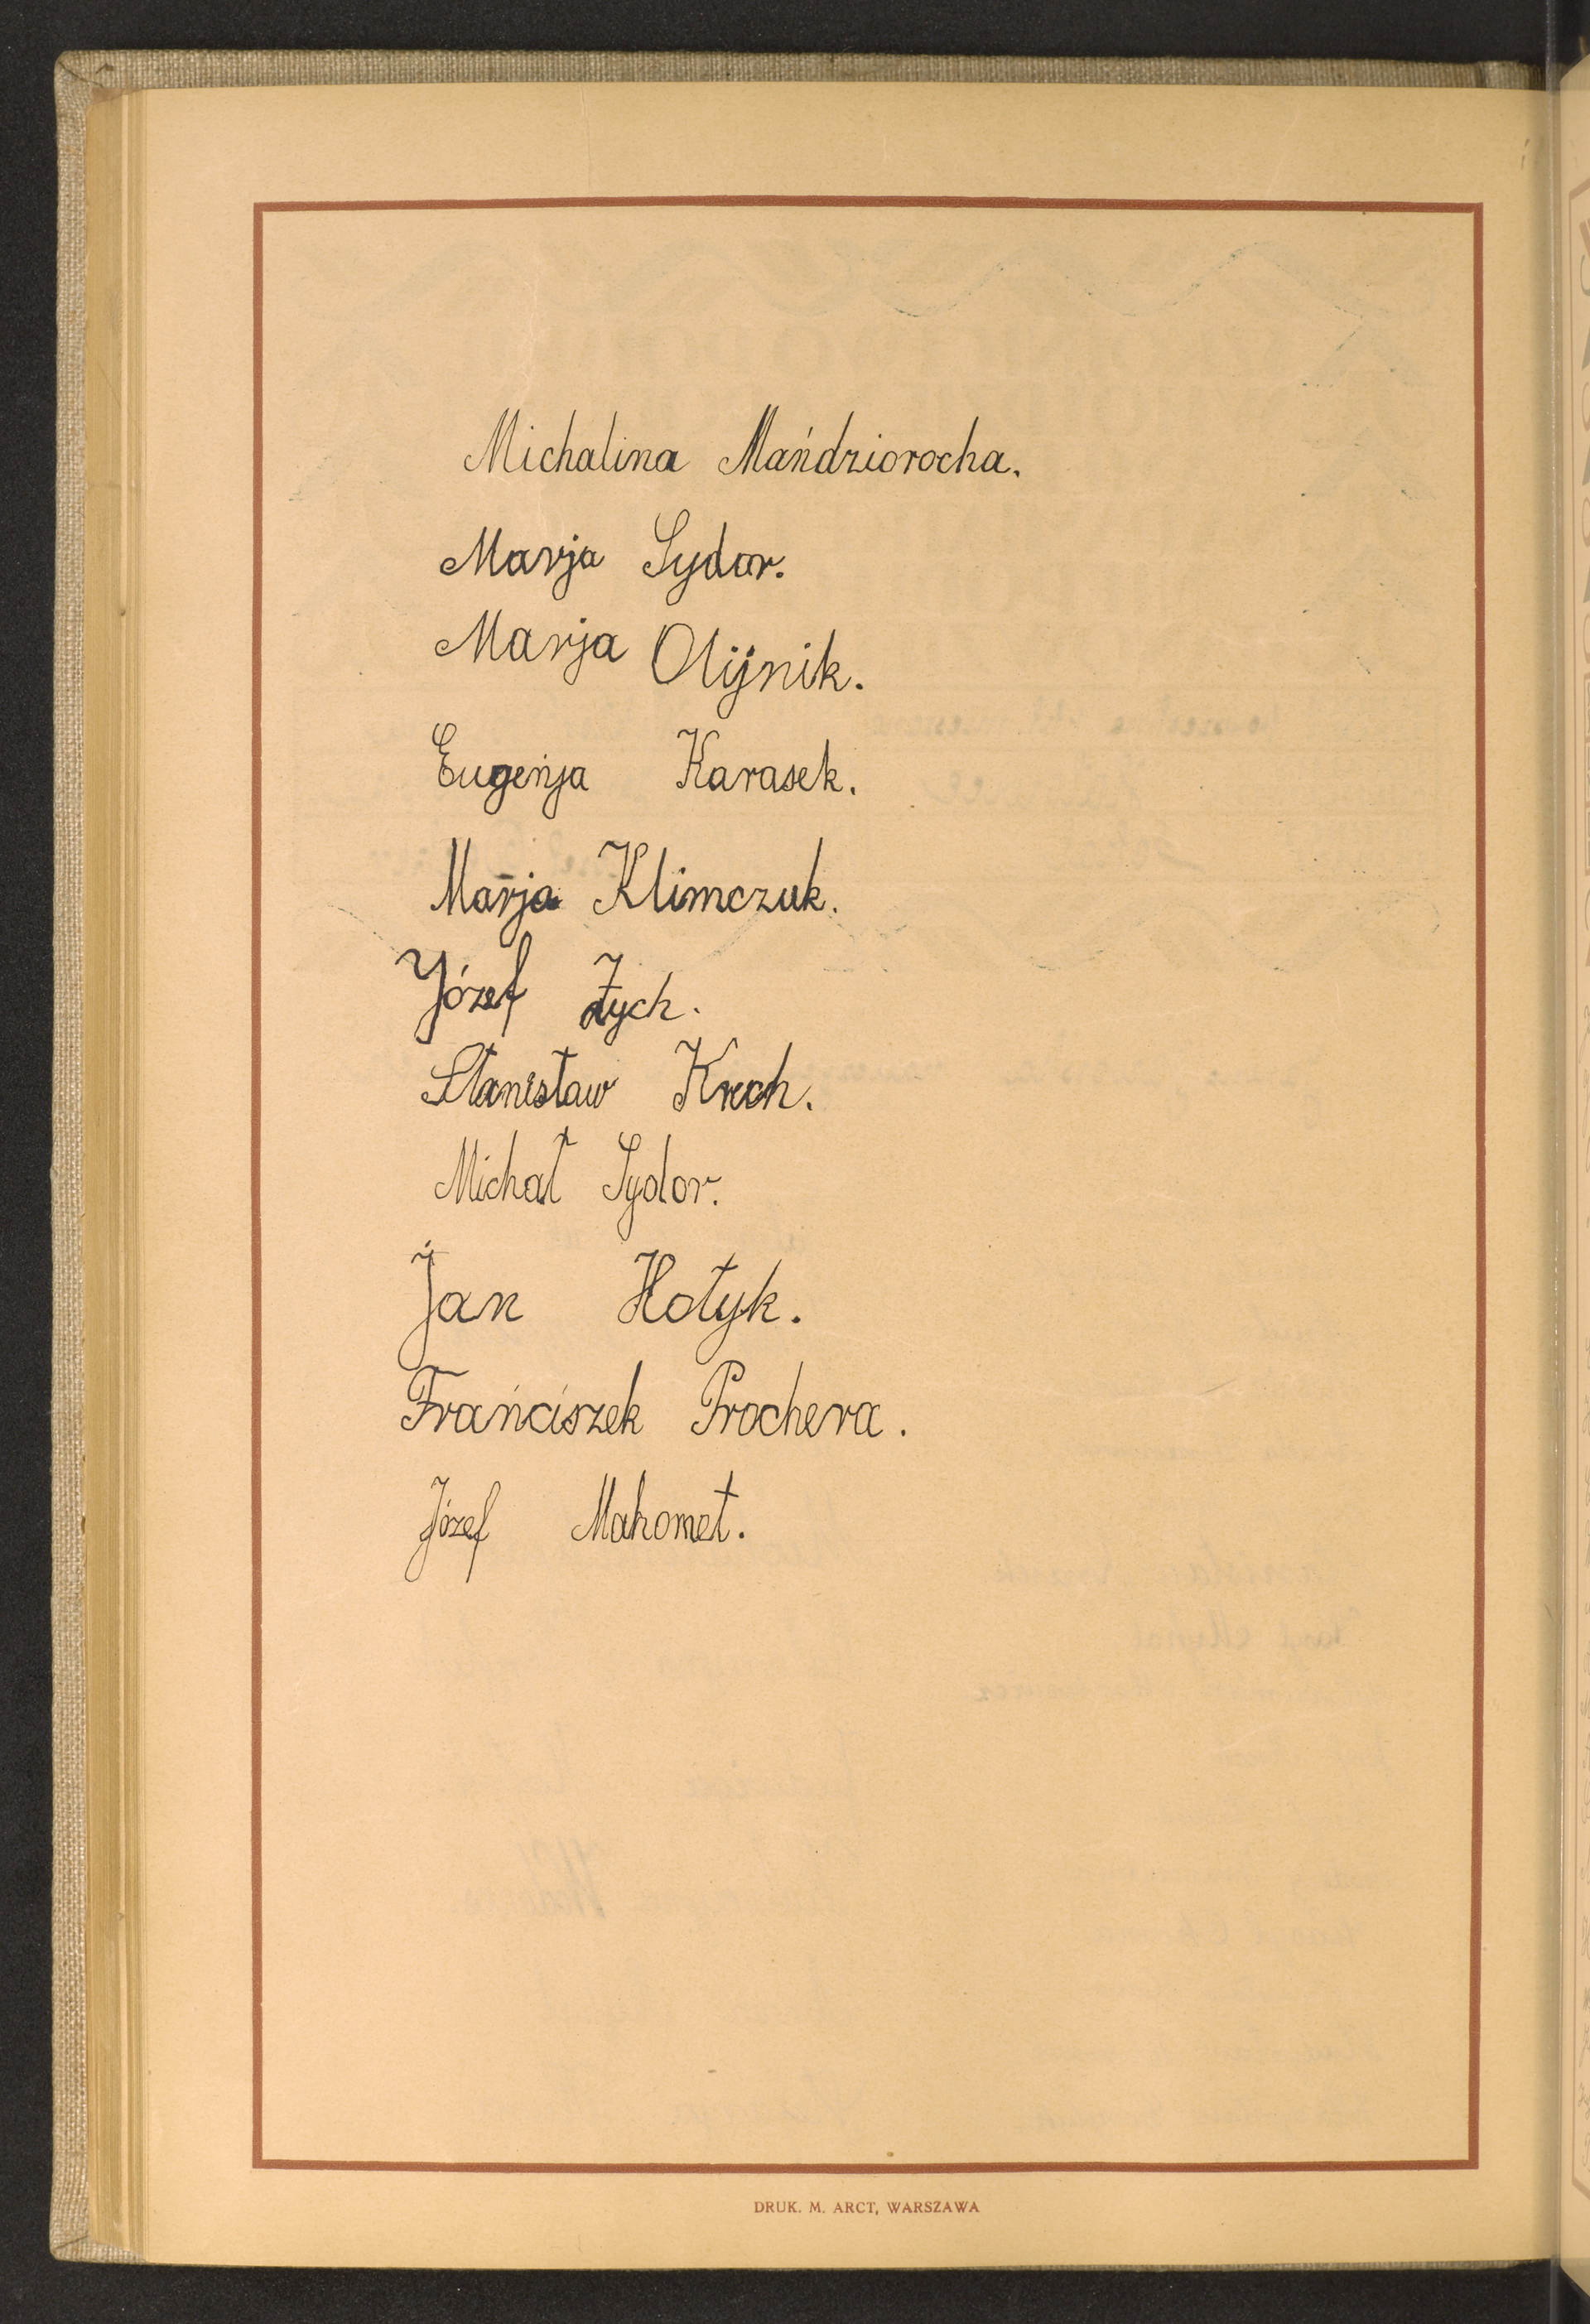 Michalina Mańdziorocha.
Marja Sydor.
Marja Olijnik.
Eugenja Karasek.
Marja Klimczuk.
Józef Zych.
Stanisław Krech.
Michał Sydor.
Jan Hołyk.
Frańciszek Prochera.
Józef Mahomet.
DRUK. M. ARCT, WARSZAWA